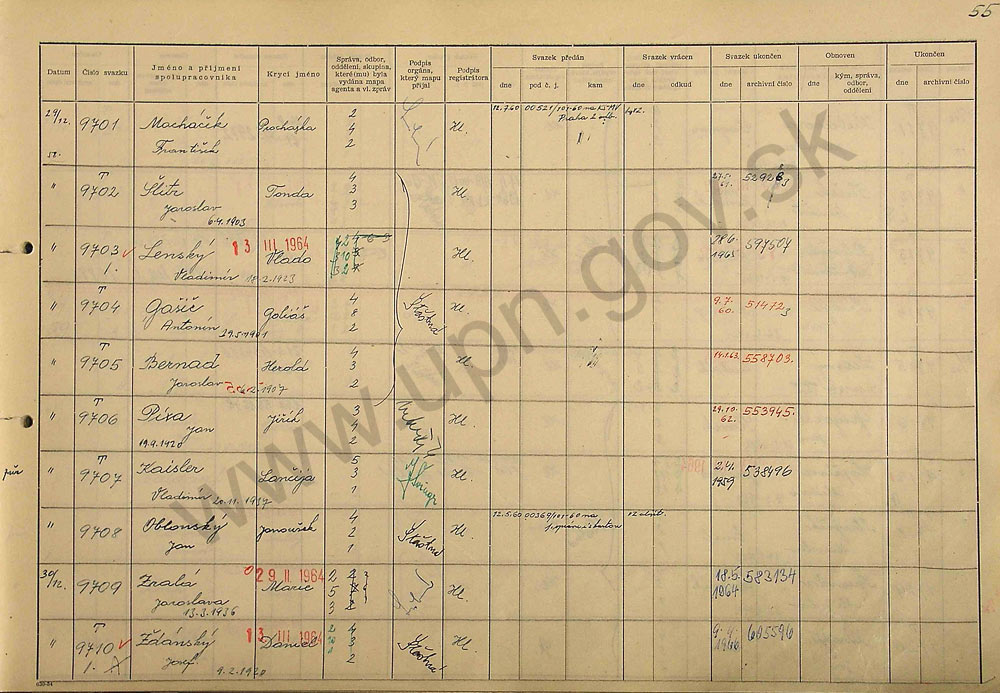 55
Datum
Číslo svazku
Jméno a příjmení spolupracovníka
Krycí jméno
Správa, odbor, oddělení, skupina, které(mu) byla vydána mapa agenta a vl. zpráv
Podpis orgána, který mapu přijal
Podpis registrátora
Svazek předán
dne
pod č. j.
kam
Svazek vrácen
dne
odkud
Svazek ukončen
dne
archivní číslo
Obnoven
dne
kým, správa, odbor, oddělení
Ukončen
dne
archivní číslo
29/12. 9701 Machačík Procházka 2 Hl. 12.7.60 00521/101-60 na KS MV
František 4 Praha 2 odb.
2
" T 9702 Šlitr Tonda 4 Hl.
Jaroslav 3
6.4.1903 3
" 9703 Lenský 13 III 1964 Vlado Hl. 28.6. 597504
1. Vladimír 18.2.1923 1965
" T 9704 Gašič Goliáš 4 Šťastná Hl. 9.7. 51472
Antonín 8 60. 3
29.5.1901 2
" T 9705 Bernad Herold 4 Hl. 14.1.63. 558703.
Jaroslav 3
1907 2
" T 9706 Pixa Jiřík 3 Hl. 29.10. 553945.
Jan 4 62.
19.9.1920 2
" T 9707 Kaisler Lančija 5 Hl. 2.4. 538496
Vladimír 20.11.1937 3 1959
1
" 9708 Oblonský Janoušek 4 Šťastná Hl. 12.5.60 00369/101-60 na
Jan 2
1
30/12. 9709 Zralá 29. II. 1964 Marie Hl. 18.5. 583134
Jaroslava 1964
13.3.1936
" T 9710 Žďánský 13 III 1964 Daniel 4 Šťastná Hl. 605596
1. Josef 3 1966
9.2.1920 2
www.upn.gov.sk